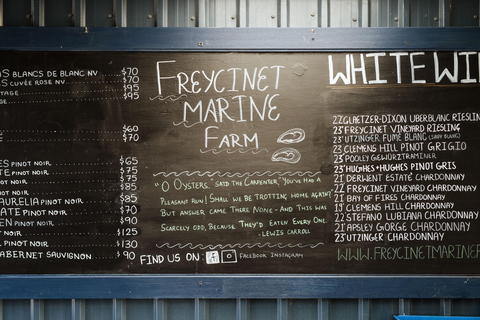 S BLANCS DE BLANC NV $70
S CUVÉE ROSE NV $70
TAGE $95
SE $95
$60
$70
ES PINOT NOIR $65
PINOT NOIR $75
NOIR $85
AURELIA PINOT NOIR $85
ATE PINOT NOIR $70
EN PINOT NOIR $90
NOIR $125
L PINOT NOIR $130
ABERNET SAUVIGNON $90
FREYCINET
MARINE
FARM
"O OYSTERS, SAID THE CARPENTER, YOU'VE HAD A
PLEASANT RUN! SHALL WE BE TROTTING HOME AGAIN?
BUT ANSWER CAME THERE NONE - AND THIS WAS
SCARCELY ODD, BECAUSE THEY'D EATEN EVERY ONE.
- LEWIS CARROLL
FIND US ON FACEBOOK INSTAGRAM
WHITE WI
22 GLAETZER-DIXON UBERBLANC RIESLIN
23 FREYCINET VINEYARD RIESLING
23 UTZINGER FUMÉ BLANC
23 CLEMENS HILL PINOT GRIGIO
23 POOLEY GEWÜRZTRAMINER
23 HUGHES + HUGHES PINOT GRIS
21 DERWENT ESTATE CHARDONNAY
22 FREYCINET VINEYARD CHARDONNAY
21 BAY OF FIRES CHARDONNAY
19 CLEMENS HILL CHARDONNAY
22 STEFANO LUBIANA CHARDONNAY
21 APSLEY GORGE CHARDONNAY
23 UTZINGER CHARDONNAY
WWW.FREYCINETMARINEF